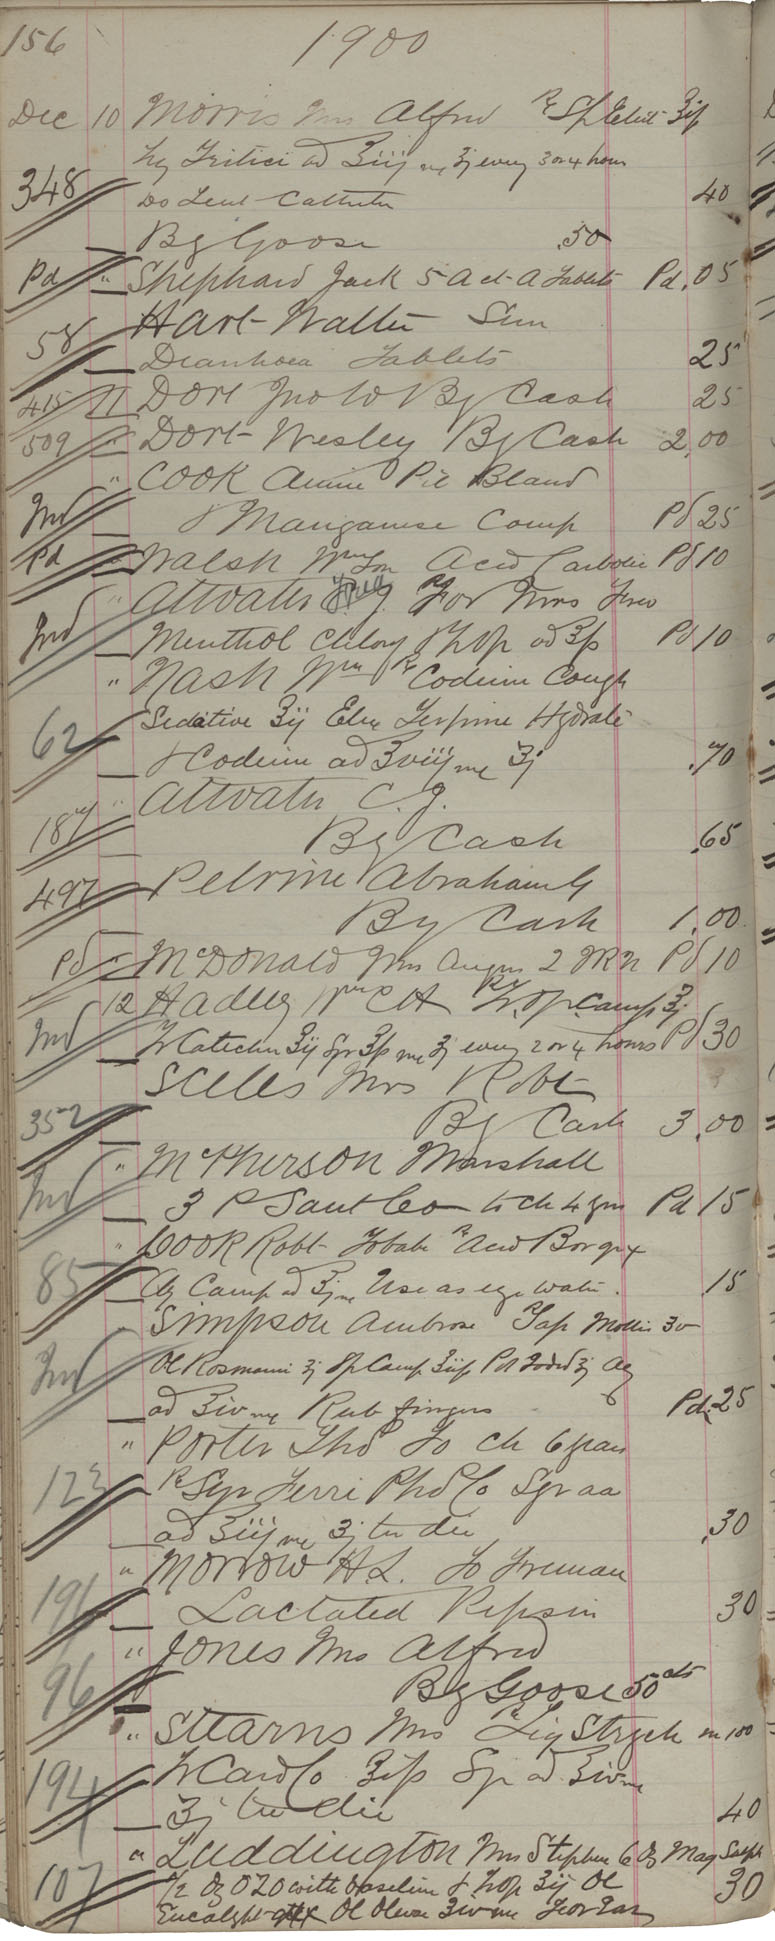 156 1900
Dec 10 Morris Mrs Alfred
ad ʒiij every 3 or 4 hours
348 Do Lent Catheter 40
By Goose .50
Pd " Shephard Jack 5 A Tablets Pd .05
Hart Walter Sen
58 Diarrhoea Tablets 25
415 " Dort Jno W By Cash 25
509 " Dort Wesley By Cash 2.00
" Cook Annie Pil Blaud
Ind & Manganese Comp Pd 25
Pd " Walsh Wm Acid Carbolic Pd 10
" Attvater J. For Mrs
Ind Menthol ad Pd 10
" Nash Wm ℞ Codeine Cough
62 Sedative ʒij Elix Terpine Hydrate
& Codeine ad ʒviij ʒj .70
" Attvater C. J.
187 By Cash .65
497 Pelrine Abraham
By Cash 1.00
Pd " McDonald Mrs Angus 2 Pd 10
12 Hadley Wm C H ℞ Tr. Op. Camp ʒj
Ind Tr Catechu ʒij every 2 or 4 hours Pd 30
Sceles Mrs Robt
352 By Cash 3.00
" McPherson Marshall
Ind 3 P Sant Co to ch 4 grs Pd 15
" Cook Robt ℞ Acid Bor
85 Aq Camp ad Use as eye water. .15
" Simpson Ambrose ℞ Sap Mollis
Ind Ol Rosmarini ʒj Camp Aq
ad ʒiv Rub fingers Pd .25
" Porter Thos To ch
123 ℞ Syr Ferri Phos Co Syr aa
ad ʒiij ʒj ter die .30
" Morrow H L. To Freman
191 Lactated Pepsin 30
" Jones Mrs Alfred
96 By Goose 50 cts
" Stearns Mrs ℞ Liq Strych m 100
194 Tr Card Co ad ʒiv
ʒj ter die 40
" Luddington Mrs Stephen 6 Oz Mag Sulph
107 1/2 Oz OZO with Vaseline & Ol 30
Eucalypt Ol Olivae ʒiv For Ear